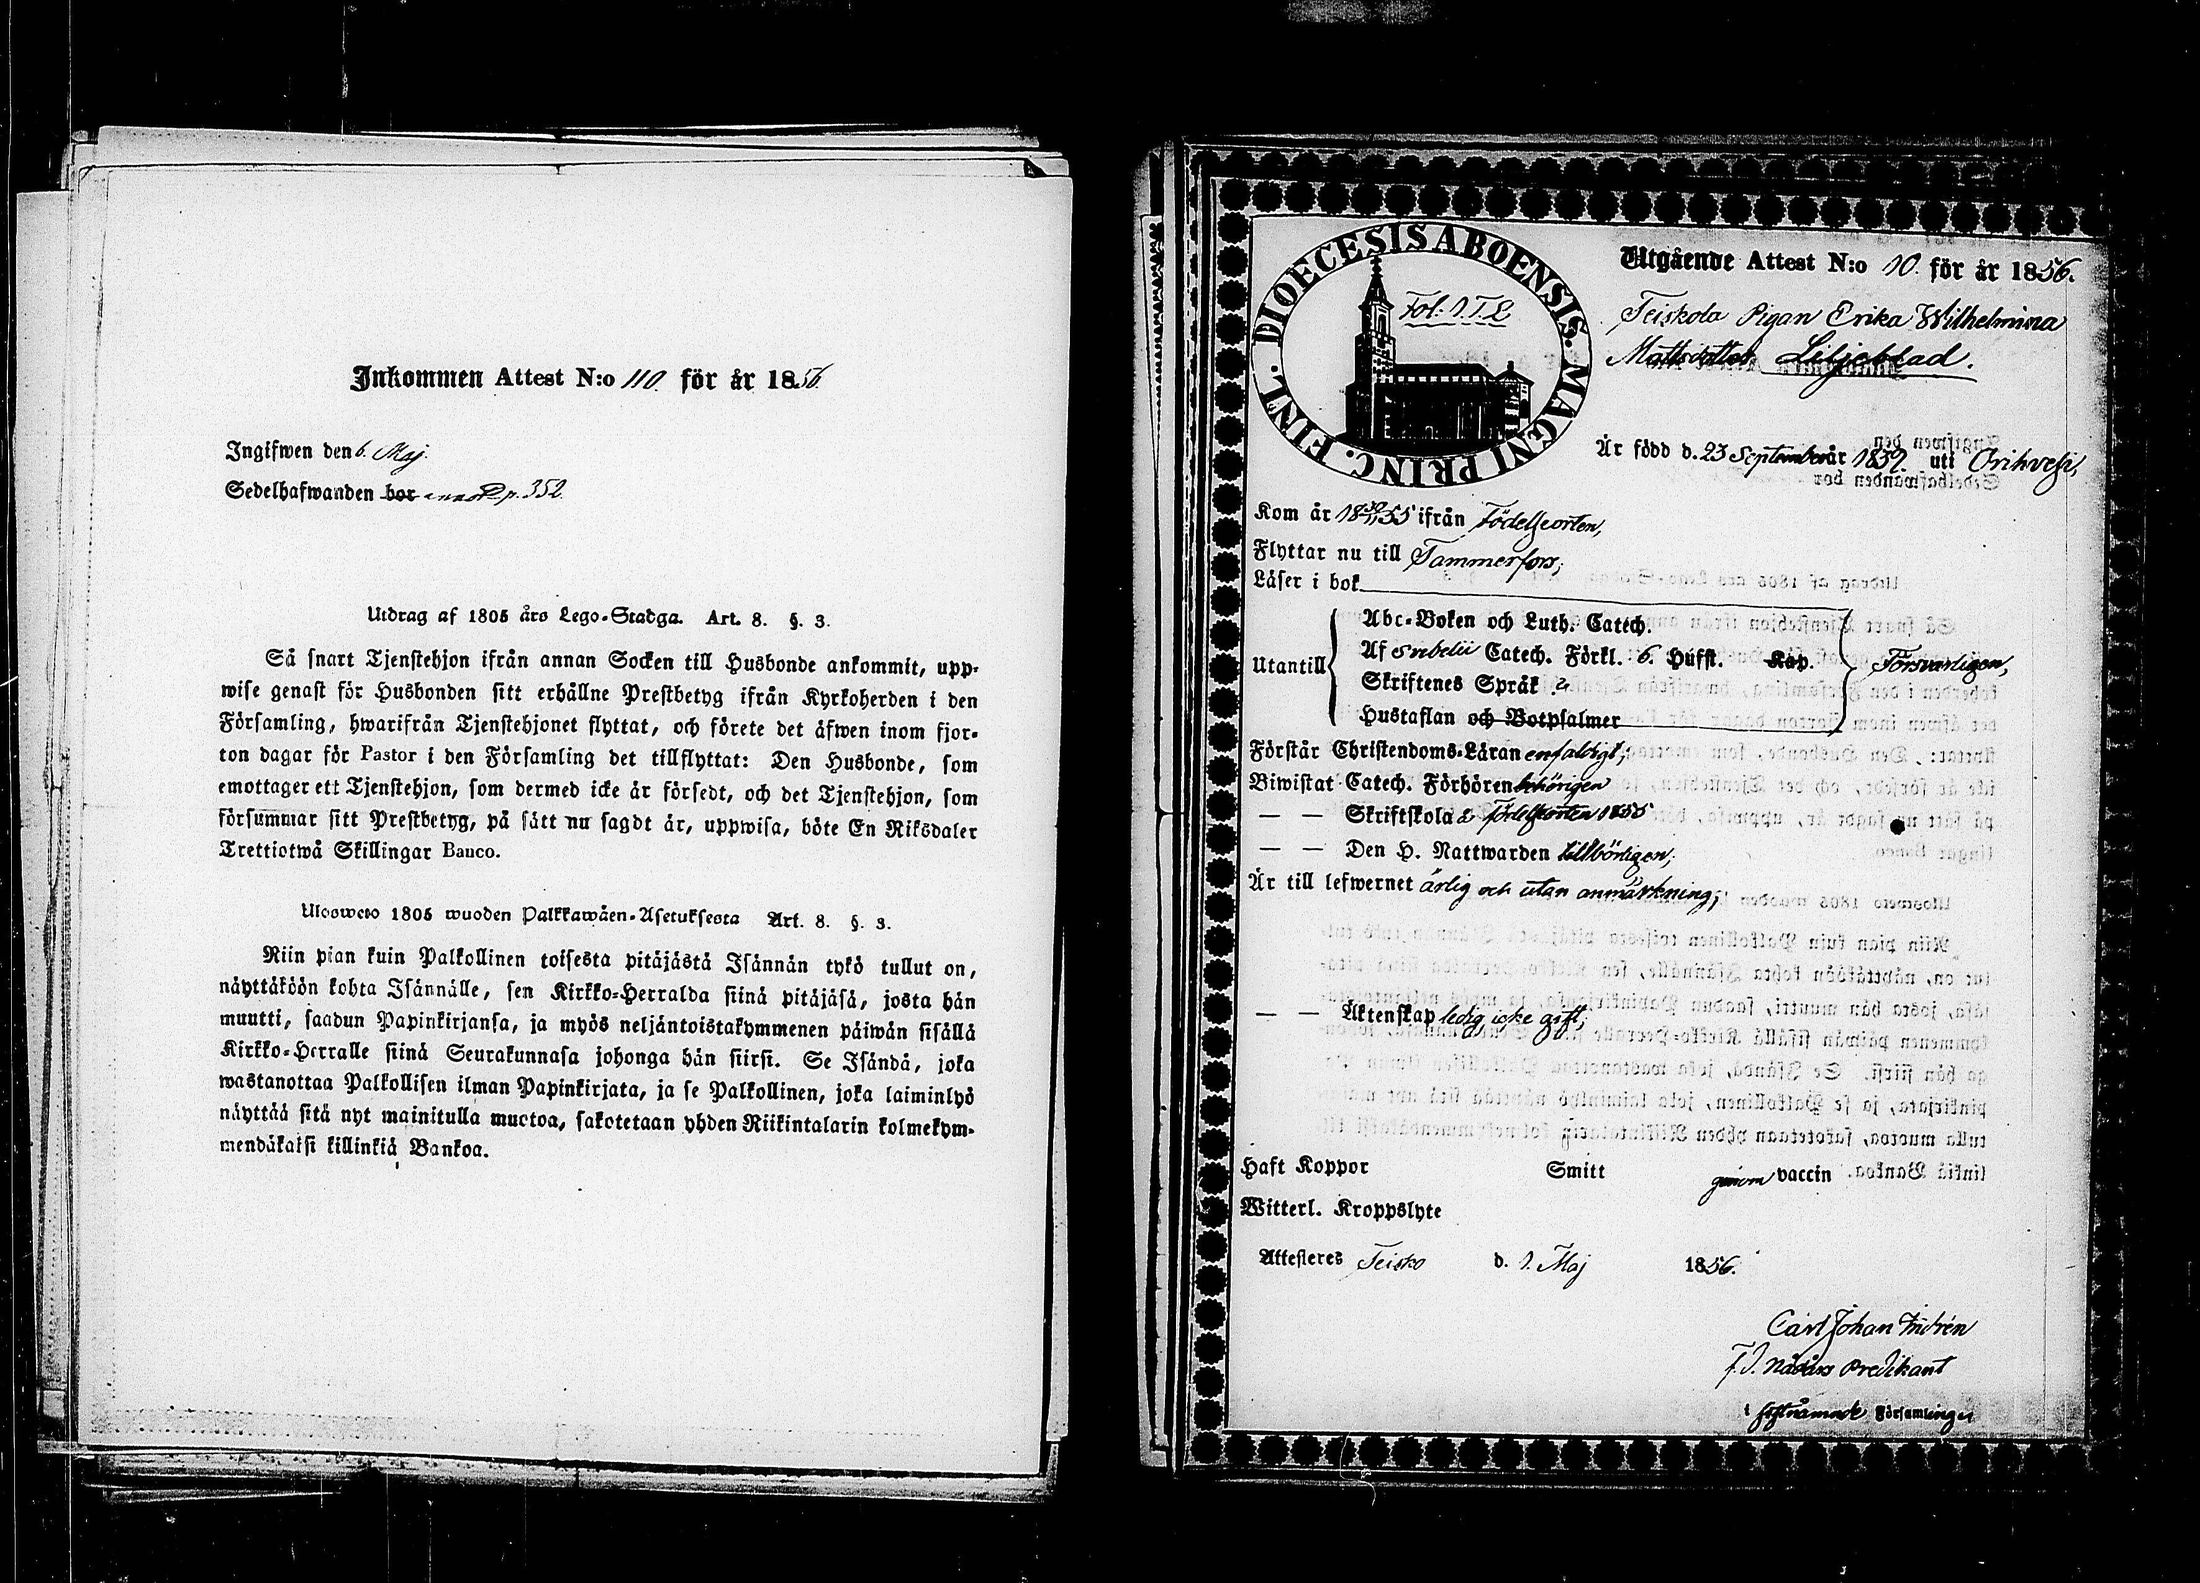 Inkommen Attest N:o 110. för år 1856.
Ingifwen den 6. Maj.
Sedelhafwanden bor p. 352.
Utdrag af 1805 års Lego-Stadga. Art. 8. §. 3.
Så snart Tjenstehjon ifrån annan Socken till Husbonde ankommit, upp-
wise genast för Husbonden sitt erhållne Prestbetyg ifrån Kyrkoherden i den
Församling, hwarifrån Tjenstehjonet flyttat, och förete det äfwen inom fjor-
ton dagar för Pastor i den Församling det tillflyttat: Den Husbonde, som
emottager ett Tjenstehjon, som dermed icke är försedt, och det Tjenstehjon, som
försummar sitt Prestbetyg, på sätt nu sagdt är, uppwisa, böte En Riksdaler
Trettiotwå Skillingar Banco.
Ulosweto 1805 wuoden Palkkawäen-Asetuksesta Art. 8. §. 3.
Niin pian kuin Palkollinen toisesta pitäjästä Isännän tykö tullut on,
näyttäköön kohta Isännälle, sen Kirkko-Herralda siinä pitäjäsä, josta hän
muutti, saadun Papinkirjansa, ja myös neljäntoistakymmenen päiwän sisällä
Kirkko-Herralle siinä Seurakunnasa johonga hän siirsi. Se Isändä, joka
wastanottaa Palkollisen ilman Papinkirjata, ja se Palkollinen, joka laiminlyö
näyttää sitä nyt mainitulla muotoa, sakotetaan yhden Riikintalarin kolmekym-
mendäkaksi killinkiä Bankoa.
DIOECESIS ABOENSIS. MAGNI PRINC. FINL.
Fol: 1. T. L
Utgående Attest N:o 10. för år 1856.
Teiskola Pigan Erika Wilhelmina
Mattsdotter Liljeblad.
Är född d. 23 September år 1837. uti Orihvesi,
Kom år 1855 ifrån Födelseorten,
Flyttar nu till Tammerfors;
Läser i bok
Utantill
Abc-Boken och Luth. Catech.
Af Svebelii Catech. Förkl. 6. Hufst. Kap. Försvarligen,
Skriftenes Språk
Hustaflan och Botpsalmer
Förstår Christendoms-Läran enfaldigt;
Biwistat Catech. Förhören behörigen
— — Skriftskola i Födelseorten 1855
— — Den H. Nattwarden tillbörligen;
Är till lefwernet ärlig och utan anmärkning;
— — Äktenskap ledig, icke gift;
Haft Koppor Smitt genom vaccin
Witterl. Kroppslyte
Attesteres Teisko d. 1. Maj 1856.
Carl Johan Indrén
Nådårs Predikant
i Församlingen